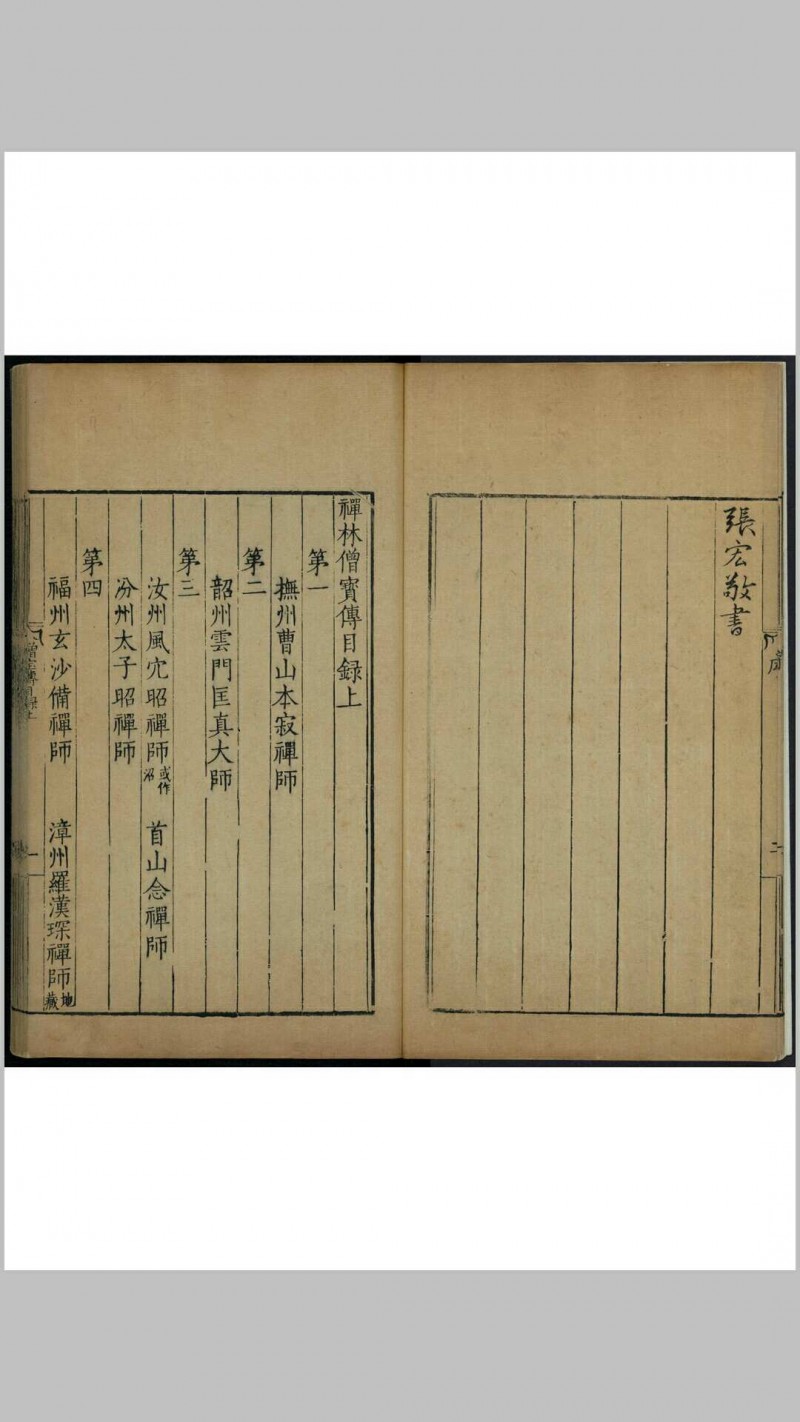 張宏敬書
禪林僧寶傳目錄上
第一
撫州曹山本寂禪師
第二
韶州雲門匡真大師
第三
汝州風穴昭禪師 或作沼 首山念禪師
汾州太子昭禪師
第四
福州玄沙備禪師 漳州羅漢琛禪師 地藏